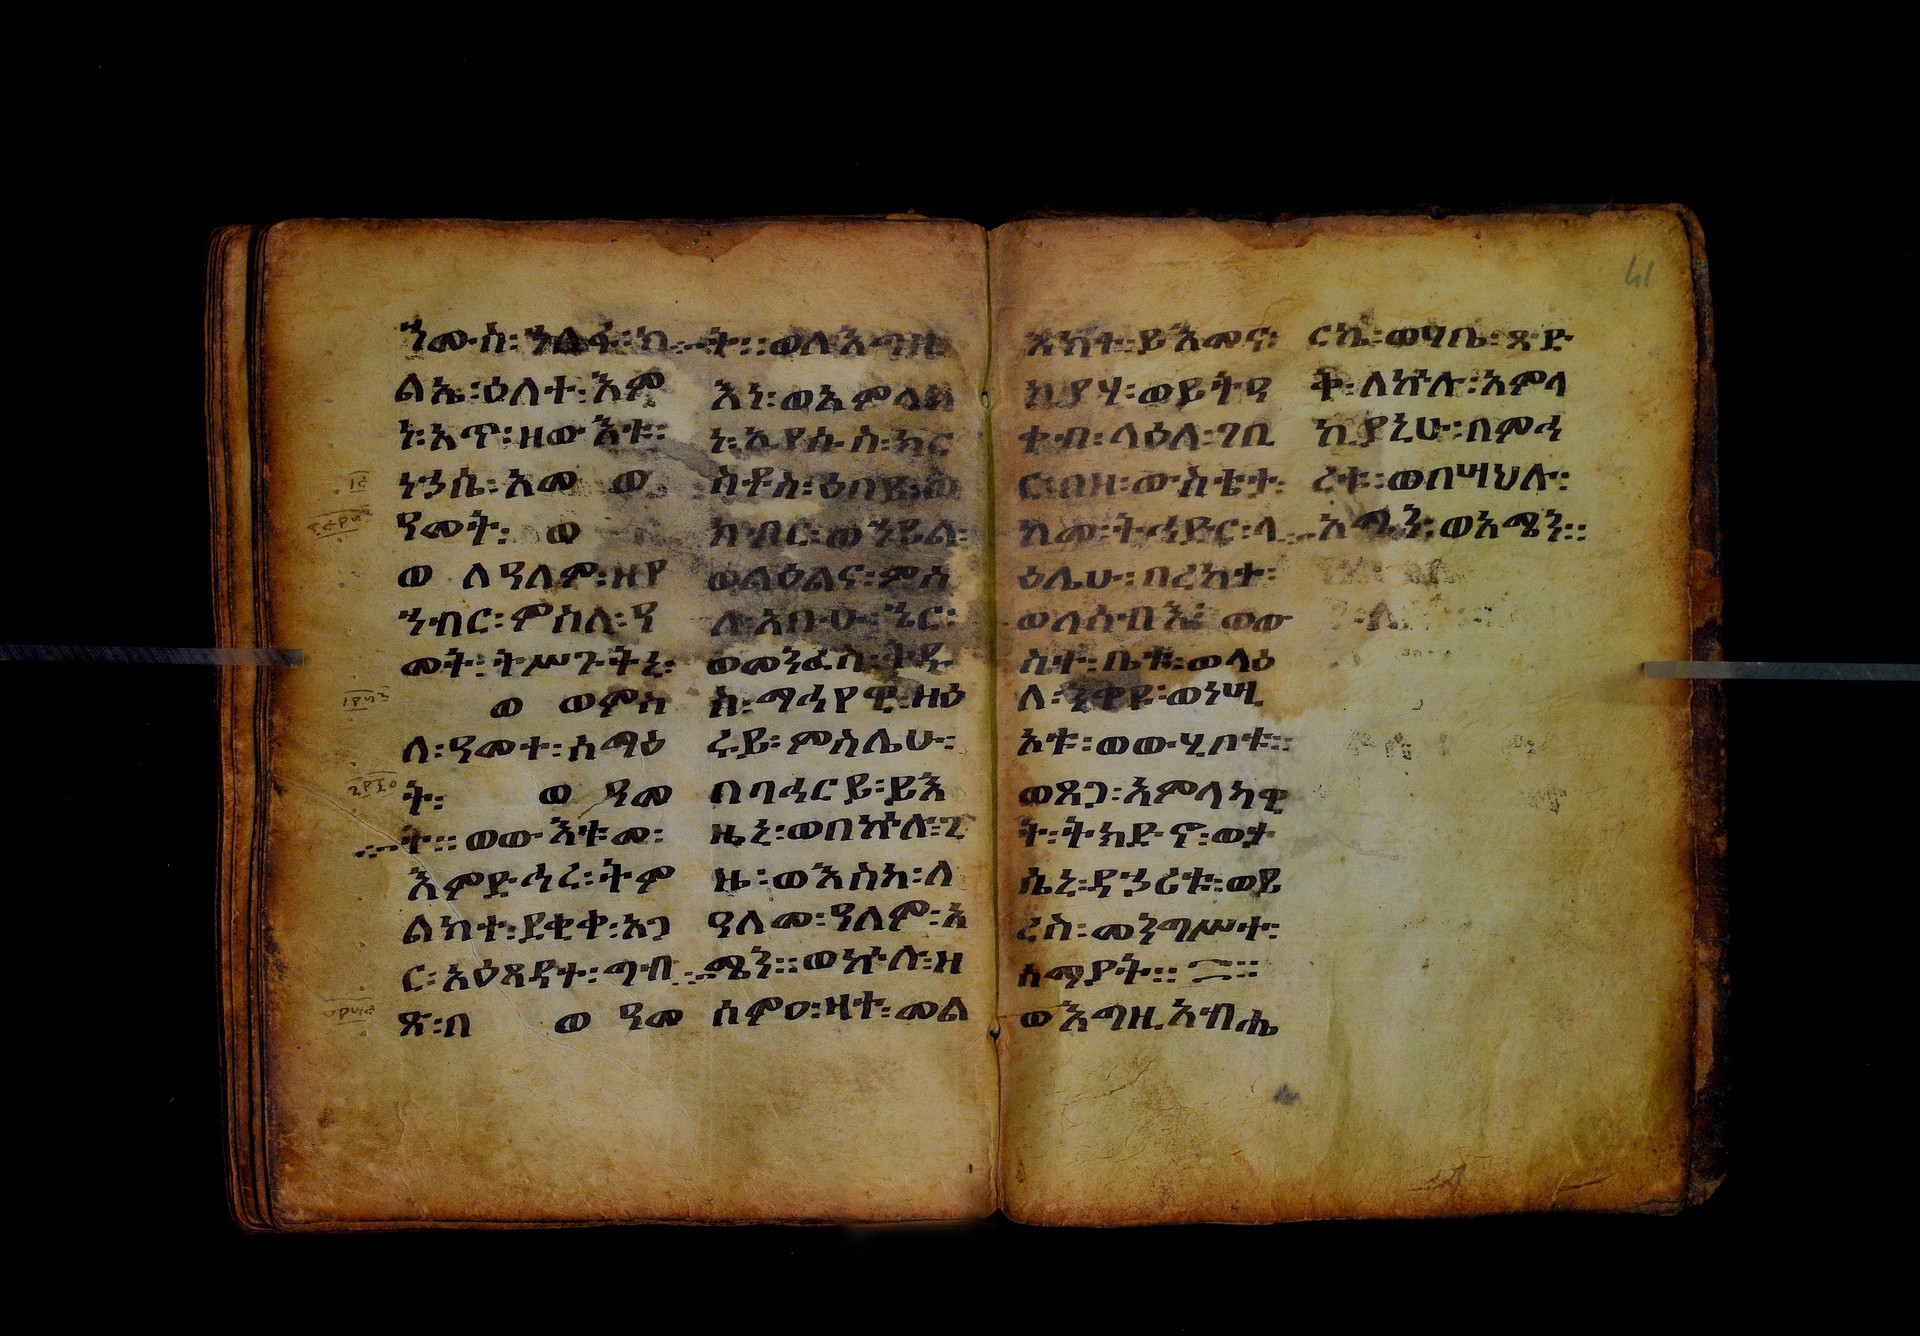 ኀሙስ፡ ኀለፋ፡ ከ
ልኤ፡ ዕለተ፡ እም
ነ፡ አጥ፡ ዘውእቱ፡
ነኃሴ፡ አመ ወ
ዓመት፡ ወ
ወ ለዓለም፡ ዘየ
ኀብር፡ ምስለ፡ ዓ
መት፡ ትሥጉትኒ፡
ወ ወምስ
ለ፡ ዓመተ፡ ሰማዕ
ት፡ ወ ዓመ
ት። ወውእቱመ፡
እምድኅረ፡ ትም
ልክተ፡ ደቂቀ፡ አጋ
ር፡ አዕጻዳተ፡ ግብ
ጽ፡ በ ወ ዓመ
ት። ወለእግዚ
እነ፡ ወአምላክ
ነ፡ ኢየሱስ፡ ክር
ስቶስ፡ ዕበይ፡ ወ
ክብር፡ ወኀይል፡
ወልዕልና፡ ምስ
ለ፡ አቡሁ፡ ኄር፡
ወመንፈስ፡ ቅዱ
ስ፡ ማኅየዊ፡ ዘዕ
ሩይ፡ ምስሌሁ፡
በባሕርይ፡ ይእ
ዜኒ፡ ወበኵሉ፡ ጊ
ዜ፡ ወእስከ፡ ለ
ዓለመ፡ ዓለም፡ አ
ሜን። ወኵሉ፡ ዘ
ሰምዐ፡ ዛተ፡ መል
እክተ፡ ይእመና፡
ከያሃ፡ ወይትዓ
ቀብ፡ ላዕለ፡ ገቢ
ር፡ በዘ፡ ውስቴታ፡
ከመ፡ ትኅድር፡ ላ
ዕሌሁ፡ በረከተ፡
ወላሰብእ፡ ወው
ስተ፡ ቤቱ፡ ወላዕ
ለ፡ ንዋዩ፡ ወነሢ
አቱ፡ ወውሂቦቱ።
ወጸጋ፡ አምላካዊ
ት፡ ትክድኖ፡ ወታ
ሴኒ፡ ዳኃሪቱ። ወይ
ረስ፡ መንግሥተ፡
ሰማያት።
ወእግዚአብሔ
ርኬ፡ ወሃቤ፡ ጽድ
ቅ፡ ለኵሉ፡ አምላ
ኪያኒሁ፡ በምሕ
ረቱ፡ ወበሣህሉ፡
አሜን፡ ወአሜን።
41